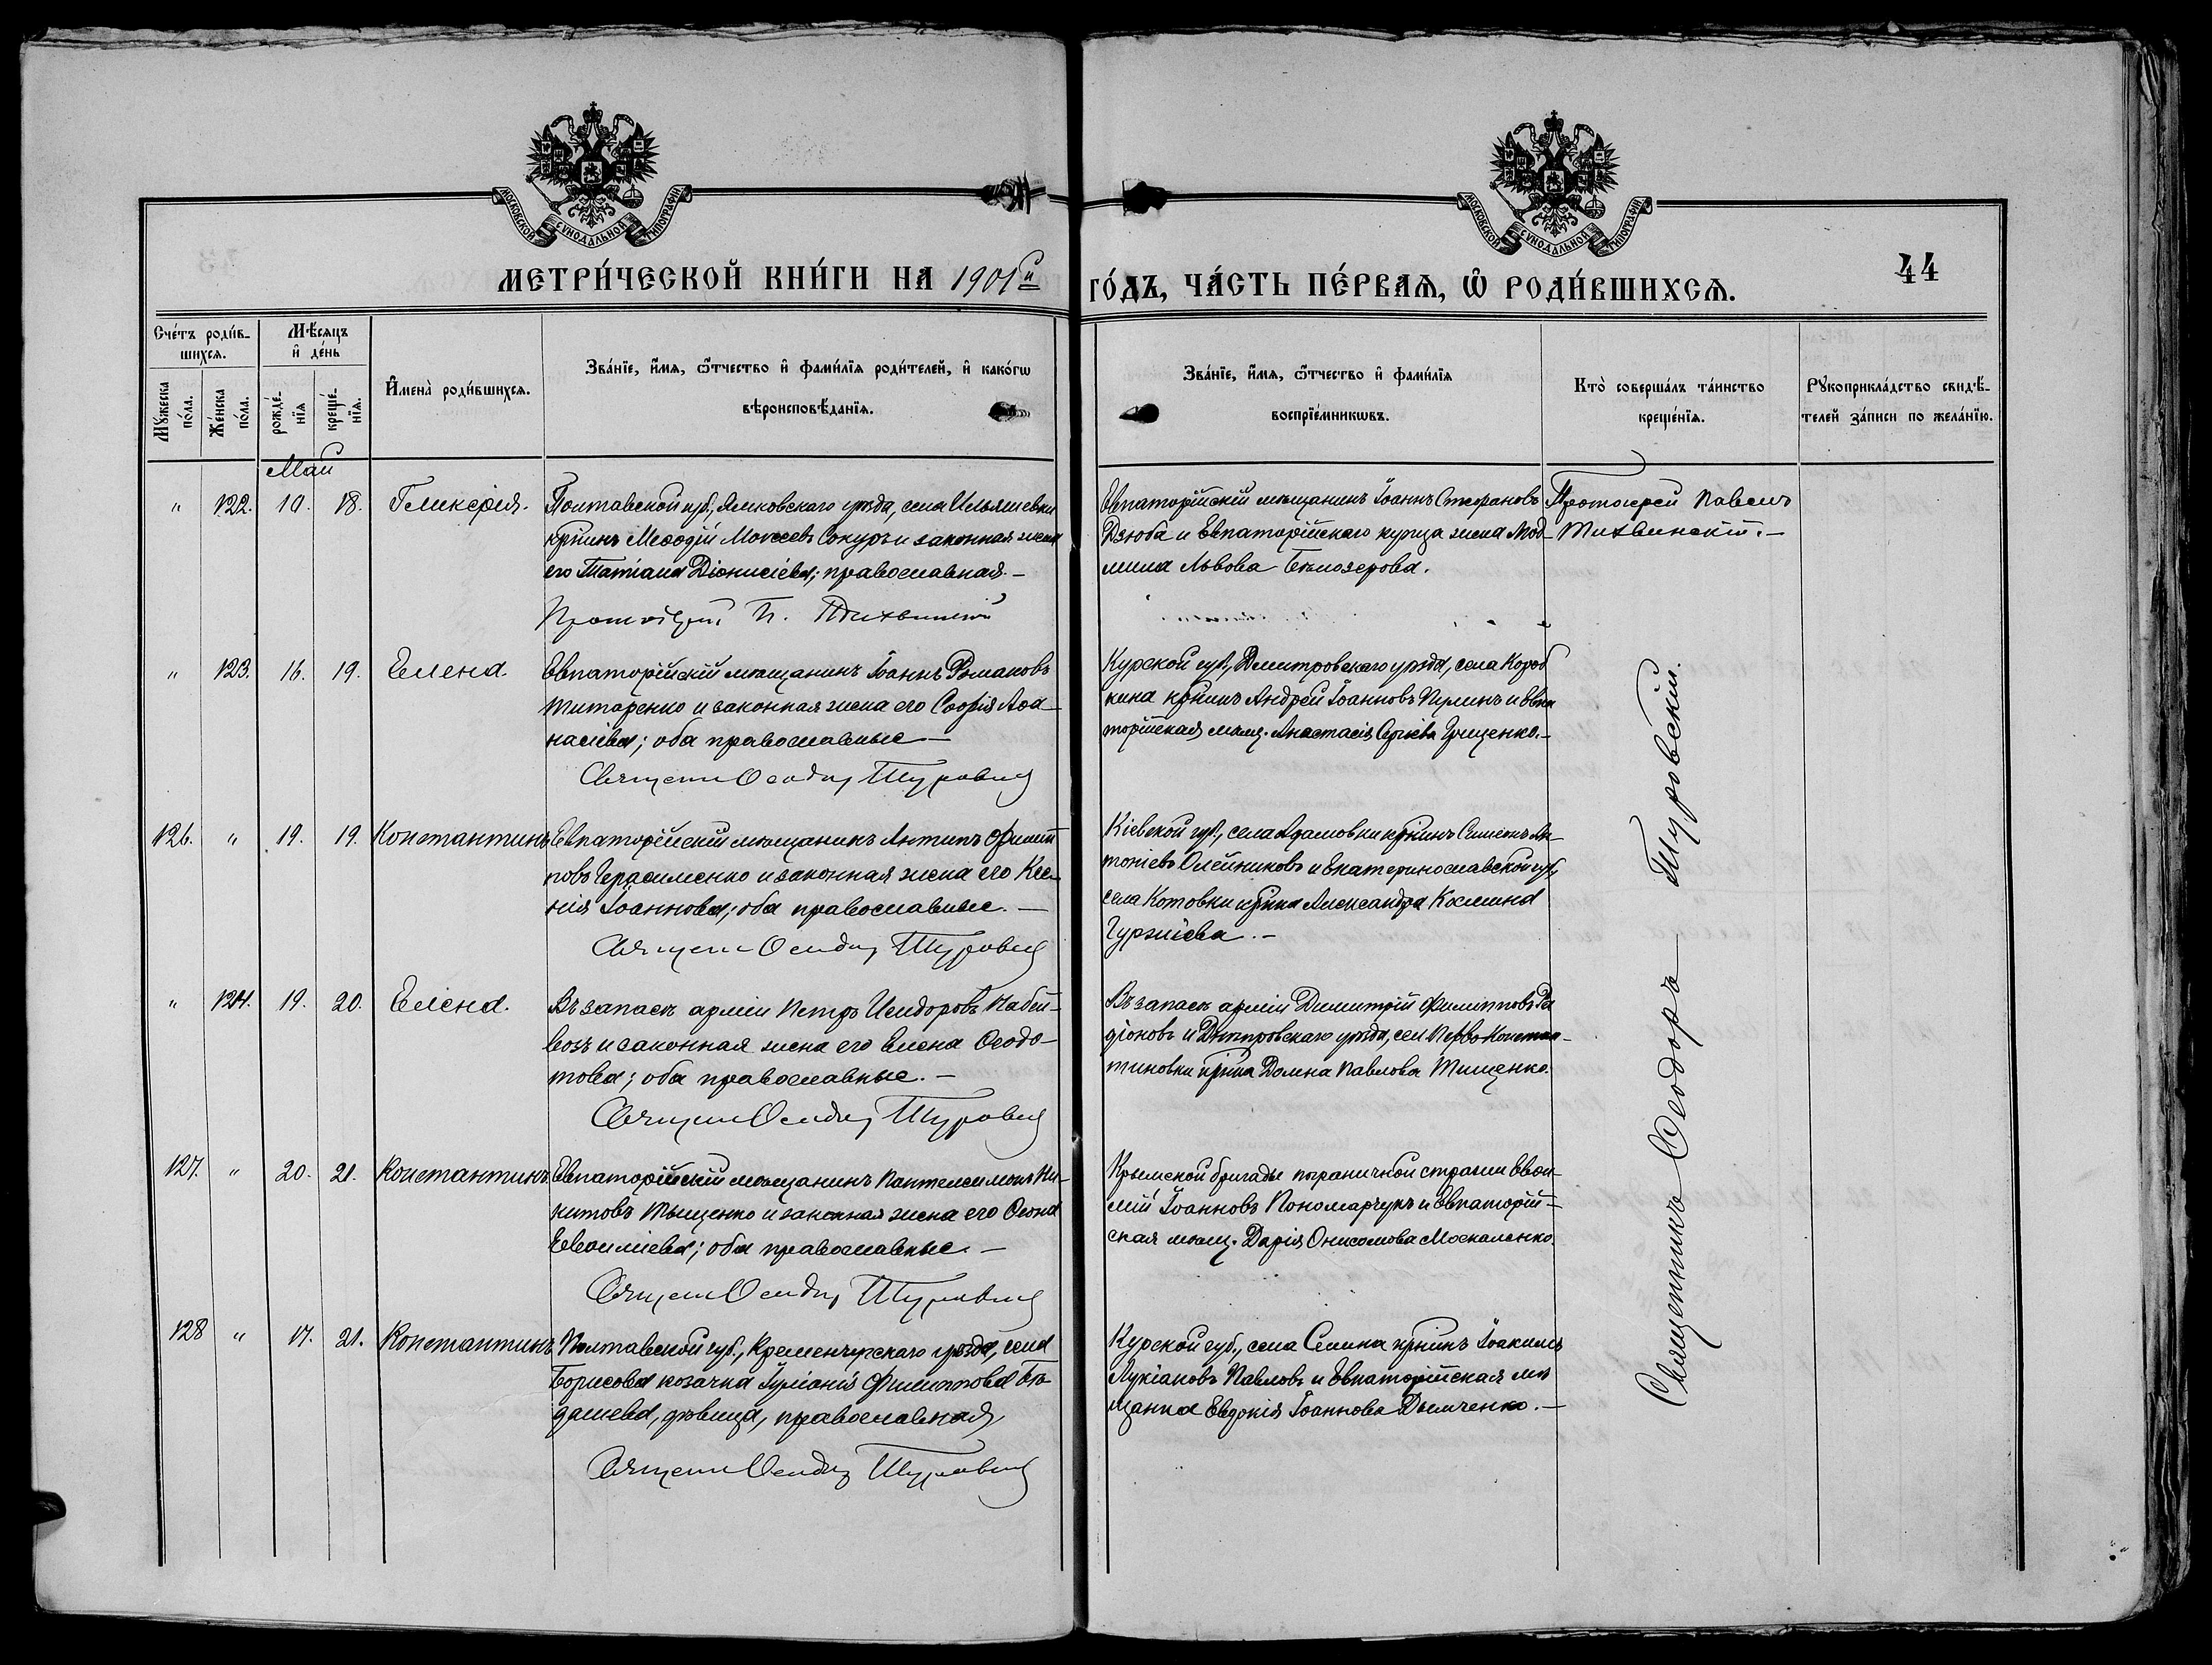 МОСКОВСКОЙ СѴНОДАЛЬНОЙ ТИПОГРАФІИ
МОСКОВСКОЙ СѴНОДАЛЬНОЙ ТИПОГРАФІИ
МЕТРИ́ЧЕСКОЙ КНИ́ГИ НА 1901й ГО́ДЪ, ЧА́СТЬ ПЕ́РВАѦ, Ѡ РОДИ́ВШИХСѦ.
44
Сче́тъ роди́в-
шихсѧ.
Мꙋ́жеска
по́ла.
Же́нска
по́ла.
Мѣ́сѧцъ
и҆ де́нь
рожде́-
нїѧ
креще́-
нїѧ.
И҆мена̀ роди́вшихсѧ.
Зва́нїе, и҆́мѧ, ѻ҆́тчество и҆ фами́лїѧ роди́телей, и҆ како́гѡ
вѣроисповѣ́данїѧ.
Зва́нїе, и҆́мѧ, ѻ҆́тчество и҆ фами́лїѧ
воспрїе́мникѡвъ.
Кто̀ соверша́лъ та́инство
креще́нїѧ.
Рꙋкоприкла́дство свидѣ́-
телей за́писи по жела́нїю.
Май
" 122. 10. 18. Гликерія.
Полтавской губ., уѣзда, села Ильяшевки
кр҃нинъ Меѳодій Моѵсеевъ Сокуръ и законная жена
его Татіана Діонисіева; православная. –
Протоіерей П. Тихвинскій
Евпаторійскій мѣщанинъ Іоаннъ Стефановъ
Дзюба и Евпаторійскаго купца жена Люд-
мила Львова Бѣлозерова.
Протоіерей Павелъ
Тихвинскій. –
" 123. 16. 19. Елена.
Евпаторійскій мѣщанинъ Іоаннъ Романовъ
Титаренко и законная жена его Софія Аѳа-
насіева; оба православные –
Священ. Ѳеодоръ Туровскій
Курской губ., Дмитровскаго уѣзда, села Короб
кина кр҃нинъ Андрей Іоанновъ и Евпа
торійская мѣщ. Анастасія Сергіева Грищенко. –
126. " 19. 19. Константинъ
Евпаторійскій мѣщанинъ Антипъ Филип
повъ Герасименко и законная жена его Ксе-
нія Іоаннова; оба православные. –
Священ. Ѳеодоръ Туровскій
Кіевской губ., села Адамовки кр҃нинъ Симеонъ Ан-
тоніевъ Олейниковъ и Екатеринославской губ.,
села Котовки кр҃нка Александра Космина
Гуржіева. –
" 124. 19. 20. Елена.
Въ запасѣ арміи Петръ Исидоровъ Набей-
возъ и законная жена его Елена Ѳеодо-
това; оба православные. –
Священ. Ѳеодоръ Туровскій
Въ запасѣ арміи Димитрій Филипповъ Ра
діоновъ и Днѣпровскаго уѣзда, села Перво-Констан-
тиновки кр҃нка Домна Павлова Тищенко.
127. " 20. 21. Константинъ.
Евпаторійскій мѣщанинъ Пантелеимонъ Ни-
китовъ Тыщенко и законная жена его Ѳеона
Евѳиміева; оба православные. –
Священ. Ѳеодоръ Туровскій
Крымской бригады пограничной стражи Евѳи-
мій Іоанновъ Пономарчукъ и Евпаторій-
ская мѣщ. Дарія Онисимова Москаленко
128 " 17. 21. Константинъ
Полтавской губ., Кременчугскаго уѣзда, села
Борисова козачка Іуліанія Филиппова
дашева, дѣвица, православная,
Священ. Ѳеодоръ Туровскій
Курской губ., села Селина кр҃нинъ Іоакимъ
Лукіановъ Павловъ и Евпаторійская мѣ
щанка Евдокія Іоаннова Дымченко. –
Священникъ Ѳеодоръ Туровскій.